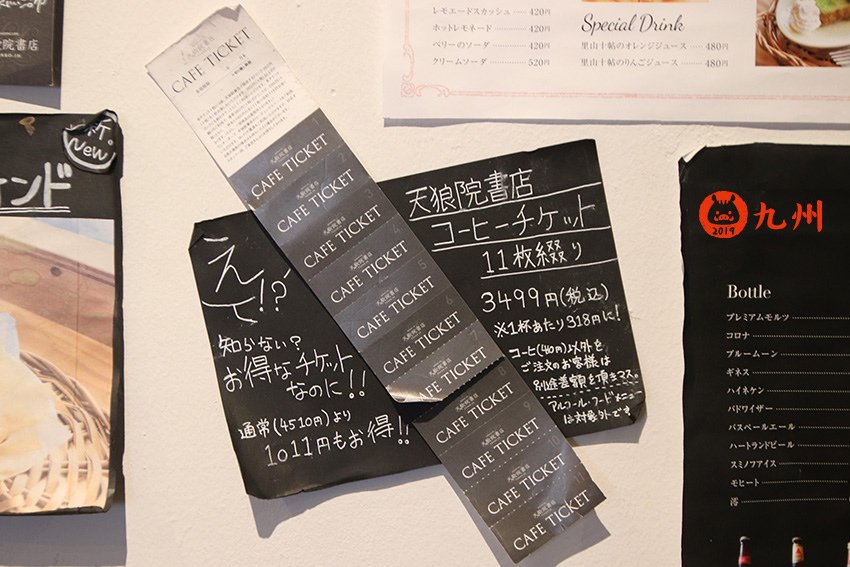 レモエードスカッシュ 420円
ホットレモネード 420円
ベリーのソーダ 420円
クリームソーダ 520円
Special Drink
里山十帖のオレンジジュース 480円
里山十帖のりんごジュース 480円
New
CAFE TICKET
1
CAFE TICKET
2
CAFE TICKET
3
CAFE TICKET
4
CAFE TICKET
5
CAFE TICKET
6
CAFE TICKET
CAFE TICKET
8
CAFE TICKET
9
CAFE TICKET
10
CAFE TICKET
11
CAFE TICKET
えて!?
知らない?
お得なチケット
なのに!!
通常(4510円)より
1011円もお得!!
天狼院書店
コーヒーチケット
11枚綴り
3499円(税込)
※1杯あたり318円に!
コーヒー(410円)以外を
ご注文のお客様は
別途差額を頂きマス。
アルコール・フードメニュー
は対象外です
2019
九州
Bottle
プレミアムモルツ
コロナ
ブルームーン
ギネス
ハイネケン
バドワイザー
バスペールエール
ハートランドビール
スミノフアイス
モヒート
澪